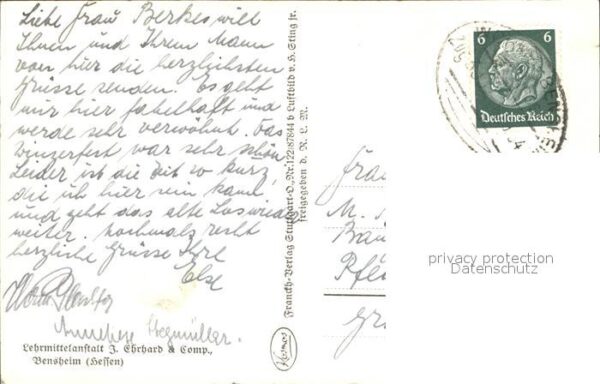 Liebe Frau Berkes will
Ihnen und Ihrem Mann
von hier die herzlichsten
Grüsse senden. Es geht
mir hier fabelhaft und
werde sehr verwöhnt. Das
Winzerfest war sehr schön
Leider ist die Zeit so kurz,
die ich hier sein kann
und geht das alte Los wieder
weiter. Nochmals recht
herzliche Grüsse Ihre
Else
Anneliese Stegmüller.
Lehrmittelanstalt J. Ehrhard & Comp.,
Bensheim (Hessen)
Franckh-Verlag Stuttgart-O. Nr. 122/87844 b Luftbild v. H. Sting jr.
freigegeben d. R. L. M.
Kosmos
6 6
Deutsches Reich
Frau
M.
privacy protection
Datenschutz